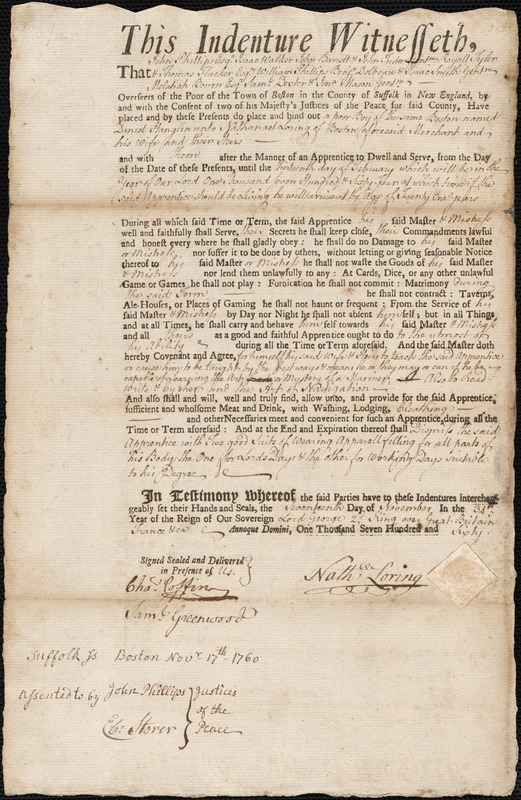 This Indenture Witnesseth,
John Phillips Esqr. Isaac Walker John Barrett & John Tudor Gentm. Royall Tyler
That & Thomas Flucker Esqrs. William Phillips Benja. Dolbeare & Isaac Smith Gentm.
Melatiah Bourn Esqr. Saml. & Jona. Mason Gentm.
Overseers of the Poor of the Town of Boston in the County of Suffolk in New England, by
and with the Consent of two of his Majesty's Justices of the Peace for said County, Have
placed and by these Presents do place and bind out a poor Boy of the same Boston named
Daniel unto Nathanael Loring of Boston aforesaid Merchant and
his Wife and their Heirs
and with them after the Manner of an Apprentice to Dwell and Serve, from the Day
of the Date of these Presents, until the day of February which will be in the
Year of Our Lord One thousand Seven Hundred & Sixty four at which time if the
said Apprentice should be Living he will arrive at the Age of Twenty One years
During all which said Time or Term, the said Apprentice his said Master & Mistress
well and faithfully shall Serve, their Secrets he shall keep close, their Commandments lawful
and honest every where he shall gladly obey: he shall do no Damage to his said Master
or Mistress nor suffer it to be done by others, without letting or giving seasonable Notice
thereof to his said Master or Mistress he shall not waste the Goods of his said Master
& Mistress nor lend them unlawfully to any: At Cards, Dice, or any other unlawful
Game or Games he shall not play: Fornication he shall not commit: Matrimony during
the said Term he shall not contract: Taverns,
Ale-Houses, or Places of Gaming he shall not haunt or frequent: From the Service of his
said Master & Mistress by Day nor Night he shall not absent him self; but in all Things
and at all Times, he shall carry and behave him self towards his said Master & Mistress
and all theirs as a good and faithful Apprentice ought to do to the utmost of
his Ability during all the Time or Term aforesaid. And the said Master doth
hereby Covenant and Agree, for himself his said Wife & Heirs to teach the said Apprentice
or cause him to be taught by the best ways & means he or they may or can if he be
capable of Learning the Art or Mystery of a Mariner Also to Read
Write & Cypher and the Art of Navigation
And also shall and will, well and truly find, allow unto, and provide for the said Apprentice,
sufficient and wholsome Meat and Drink, with Washing, Lodging, Cloathing
and other Necessaries meet and convenient for such an Apprentice, during all the
Time or Term aforesaid: And at the End and Expiration thereof shall Dismiss the said
Apprentice with two good Suits of Wearing Apparell fitting for all parts of
his Body the One for Lords Days & the other for Working Days Suitable
to his Degree
In Testimony whereof, the said Parties have to these Indentures interchan-
geably set their Hands and Seals, the Seventeenth Day of November In the 34th
Year of the Reign of Our Sovereign Lord George 2d. King over Great Britain
France &ca Annoque Domini, One Thousand Seven Hundred and Sixty.
Signed Sealed and Delivered
in Presence of Us.
Nathl. Loring
Chas. Coffin
Saml. Greenwood
Suffolk Ss Boston Novr. 17th. 1760
Assented to by John Phillips
Eb. Storer
Justices
of the
Peace